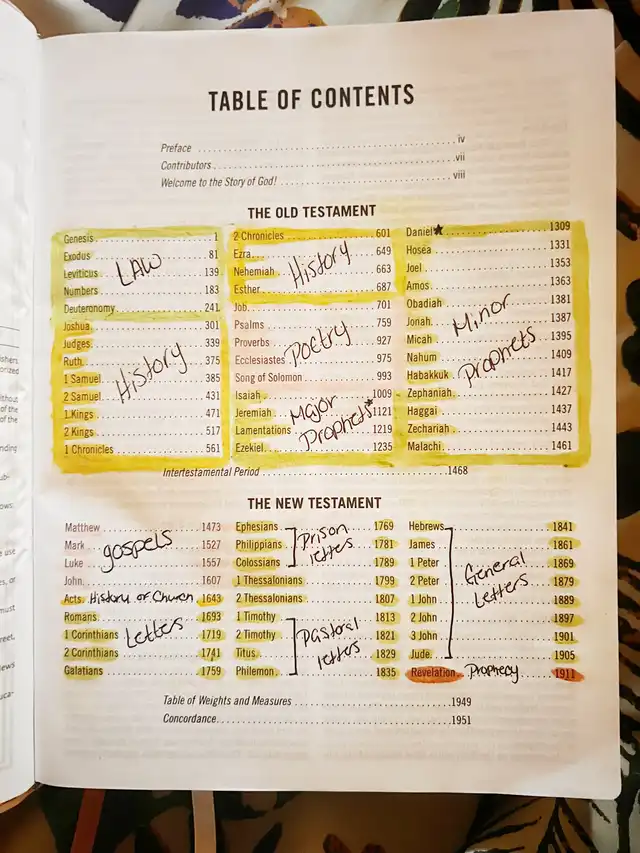 TABLE OF CONTENTS
Preface iv
Contributors vii
Welcome to the Story of God! viii
THE OLD TESTAMENT
Genesis 1
Exodus 81
Leviticus 139
Numbers 183
Deuteronomy 241
LAW
Joshua 301
Judges 339
Ruth 375
1 Samuel 385
2 Samuel 431
1 Kings 471
2 Kings 517
1 Chronicles 561
History
2 Chronicles 601
Ezra 649
Nehemiah 663
Esther 687
History
Job 701
Psalms 759
Proverbs 927
Ecclesiastes 975
Song of Solomon 993
Poetry
Isaiah 1009
Jeremiah 1121
Lamentations 1219
Ezekiel 1235
Major
Prophets*
Daniel ★ 1309
Hosea 1331
Joel 1353
Amos 1363
Obadiah 1381
Jonah 1387
Micah 1395
Nahum 1409
Habakkuk 1417
Zephaniah 1427
Haggai 1437
Zechariah 1443
Malachi 1461
Minor
Prophets
Intertestamental Period 1468
THE NEW TESTAMENT
Matthew 1473
Mark 1527
Luke 1557
John 1607
gospels
Acts History of Church 1643
Romans 1693
1 Corinthians 1719
2 Corinthians 1741
Galatians 1759
Letters
Ephesians 1769
Philippians 1781
Colossians 1789
Prison
letters
1 Thessalonians 1799
2 Thessalonians 1807
1 Timothy 1813
2 Timothy 1821
Titus 1829
Philemon 1835
Pastoral
letters
Hebrews 1841
James 1861
1 Peter 1869
2 Peter 1879
1 John 1889
2 John 1897
3 John 1901
Jude 1905
General
Letters
Revelation Prophecy 1911
Table of Weights and Measures 1949
Concordance 1951